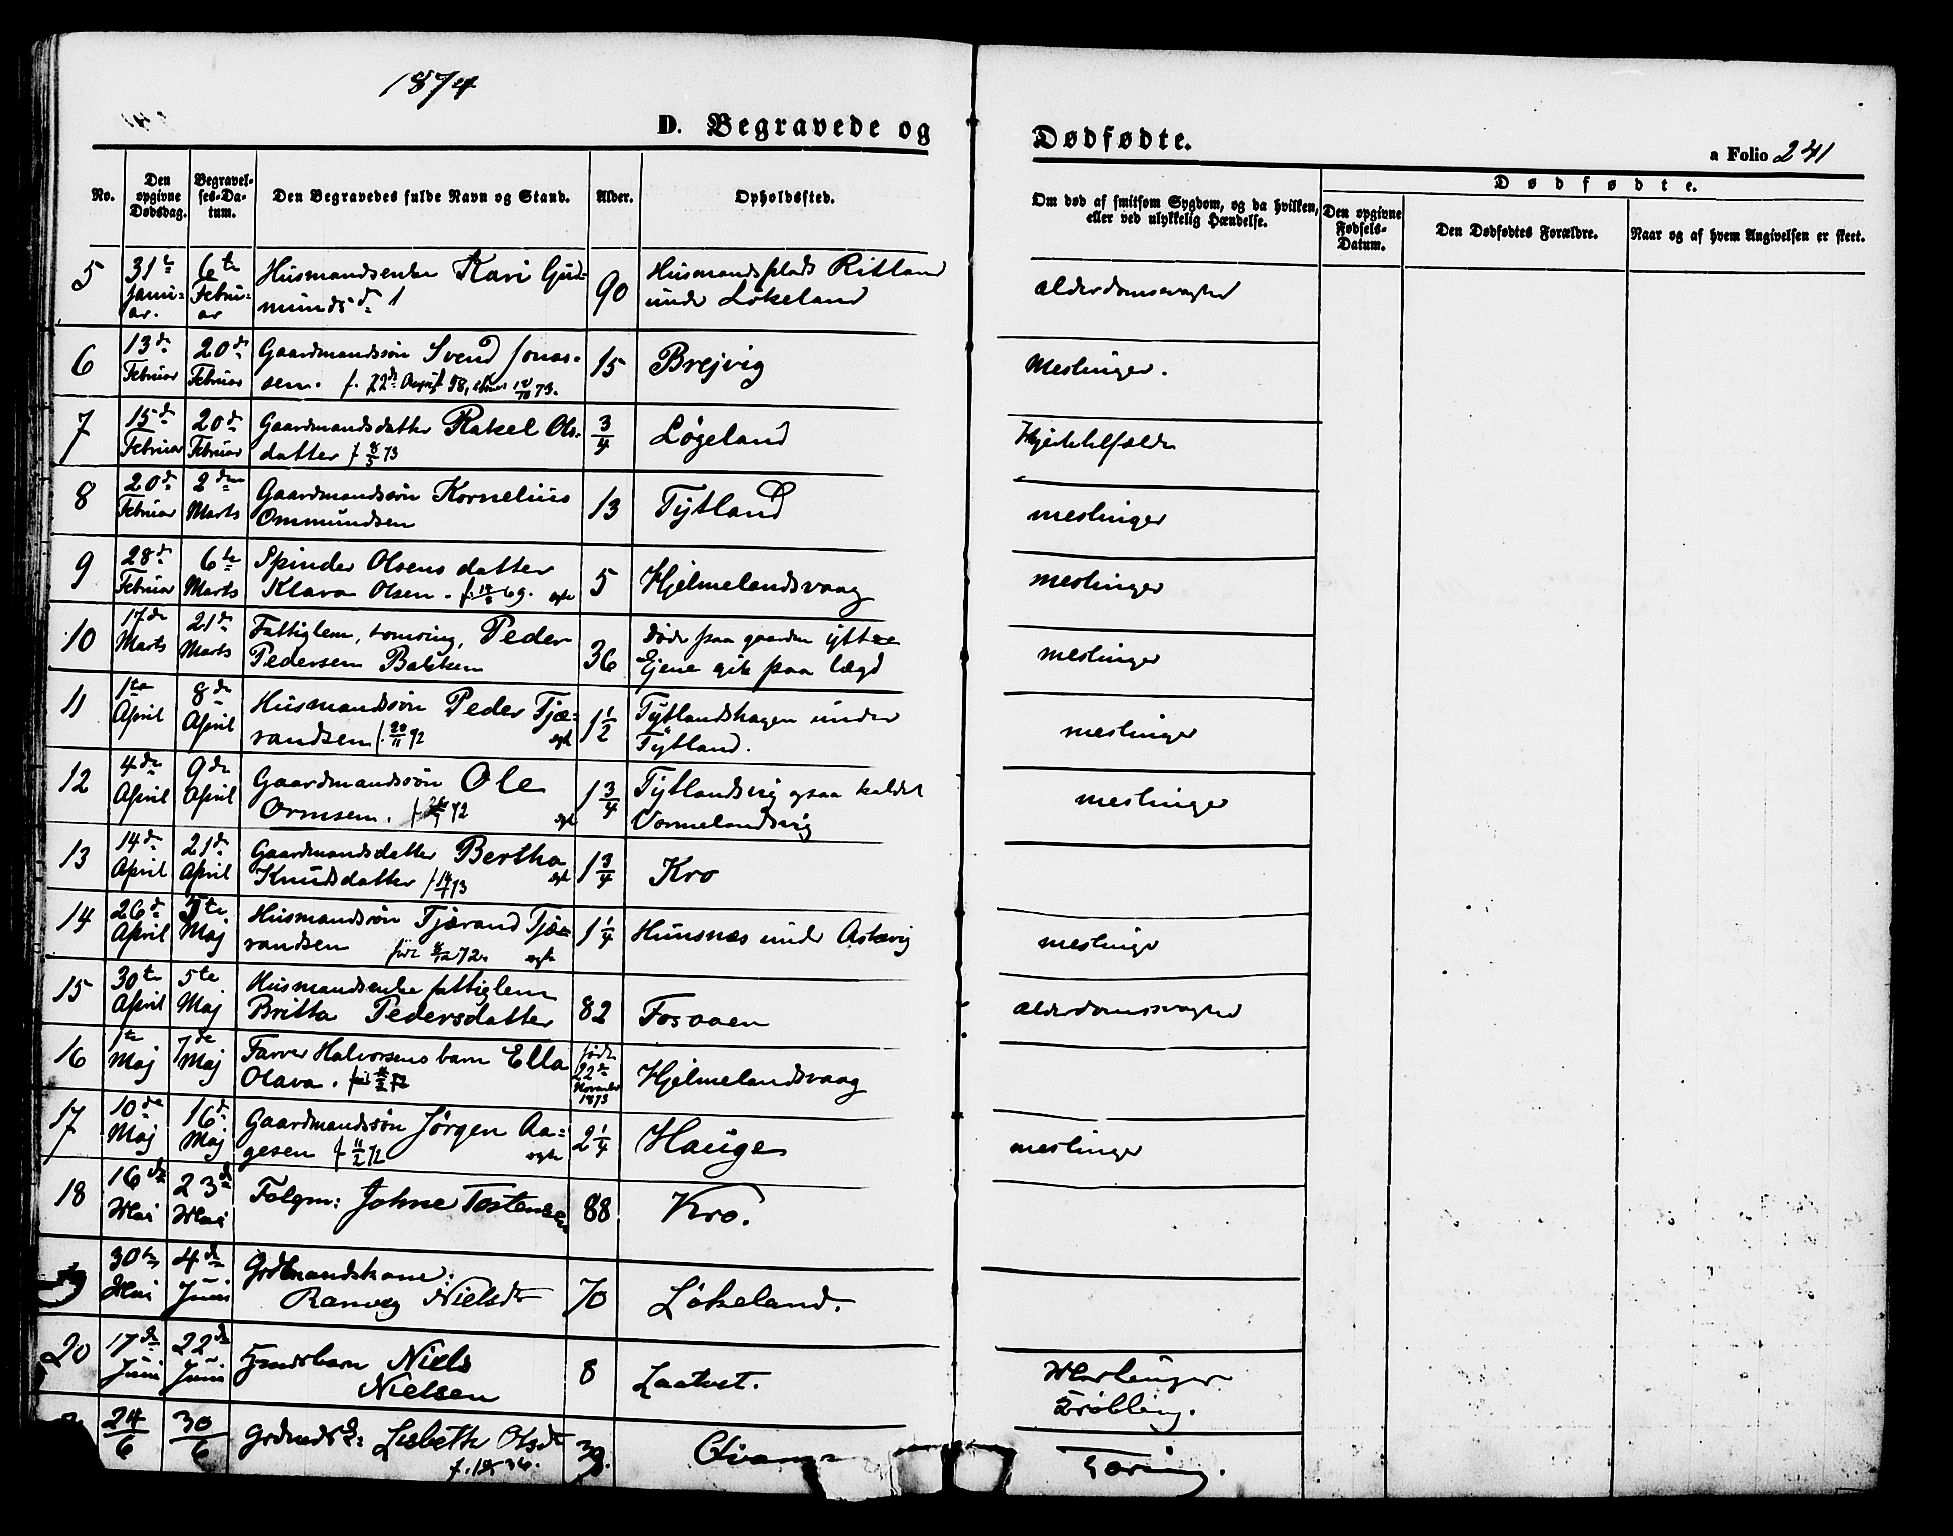 1874
D. Begravede og Dødfødte.
a Folio 241
No.
Den opgivne Dødsdag.
Begravelses-Datum.
Den Begravedes fulde Navn og Stand.
Alder.
Opholdssted.
Om død af smitsom Sygdom, og da hvilken, eller ved ulykkelig Hændelse.
Dødfødte.
Den opgivne Fødsels-Datum.
Den Dødfødtes Forældre.
Naar og af hvem Angivelsen er skeet.
5 31te Januar. 6te Februar Husmandsenke Kari Gudmundsd. 90 Husmandsplads Ritland under Løkeland alderdomssvaghed
6 13de Februar 20de Februar Gaardmandssøn Svend Jonassen. f. 22de August 58, 15 Brejvig Meslinger.
7 15de Februar 20de Februar Gaardmandsdatter Rakel Olsdatter f 8/5 73 3/4 Løgeland
8 20de Februar 2den Marts Gaardmandssøn Kornelius Ommundsen 13 Tytland meslinger
9 28de Februar 6te Marts Spinder Olsens datter Klara Olsen. 69. egte 5 Hjelmelandsvaag meslinger
10 17de Marts 21de Marts Fattiglem, Peder Pedersen Bakken 36 døde paa gaarden yttre Ejene gik paa lægd meslinger
11 1te April 8de April Husmandssøn Peder Tjærandsen f. 20/11 72 egte 1 1/2 Tytlandshagen under Tytland. meslinger
12 4de April 9de April Gaardmandssøn Ole Ormsen. 72 egte 1 3/4 Tytlandsvig ogsaa kaldet Vormelandsvig meslinger
13 14de April 21de April Gaardmandsdatter Bertha Knudsdatter 73 egte 1 3/4 Kro
14 26de April 5te Maj Husmandssøn Tjærand Tjærandsen 72 egte 1 1/4 Hunsnæs under meslinger
15 30te April 5te Maj Husmandsenke fattiglem Britta Pedersdatter 82 Fosaaen alderdomssvaghed
16 1te Maj 7de Maj Farver Halvorsens barn Ella Olava. født 22de November 1873 Hjelmelandsvaag
17 10de Maj 16de Maj Gaardmandssøn Jørgen Aagesen f 11/2 72 egte 2 1/4 Hauge meslinger
18 16de Mai 23de Mai Folgm: Johne Tostensen 88 Kro.
19 30te Mai 4de Juni Grdmandskone: Ranveg Nielsdtr 70 Løkeland.
20 17de Juni 22de Juni Niels Nielsen 8 Laatvet. Meslinger
24/6 30/6 Lisbeth Olsdtr 36. 39. Tæring.